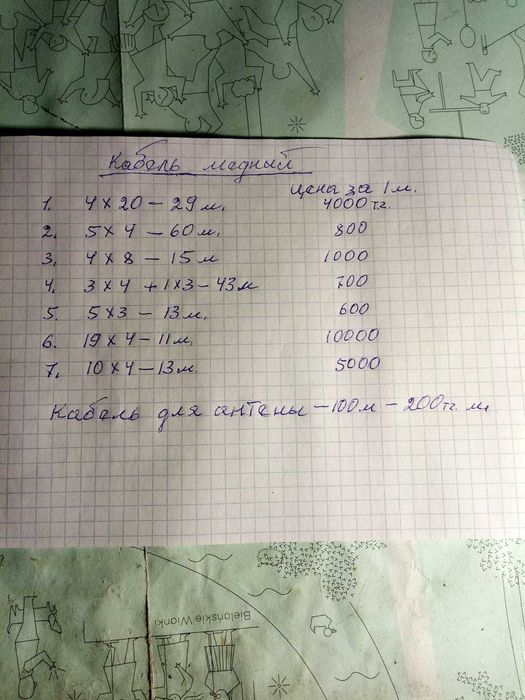 Кабель медный
цена за 1 м.
1. 4 х 20 – 29 м, 4000 тг.
2. 5 х 4 – 60 м, 800
3. 4 х 8 – 15 м 1000
4. 3 х 4 + 1х3 – 43 м 700
5. 5 х 3 – 13 м, 600
6. 19 х 4 – 11 м, 10000
7. 10 х 4 – 13 м. 5000
Кабель для антены – 100 м – 200 тг. м.
Bielańskie Wianki